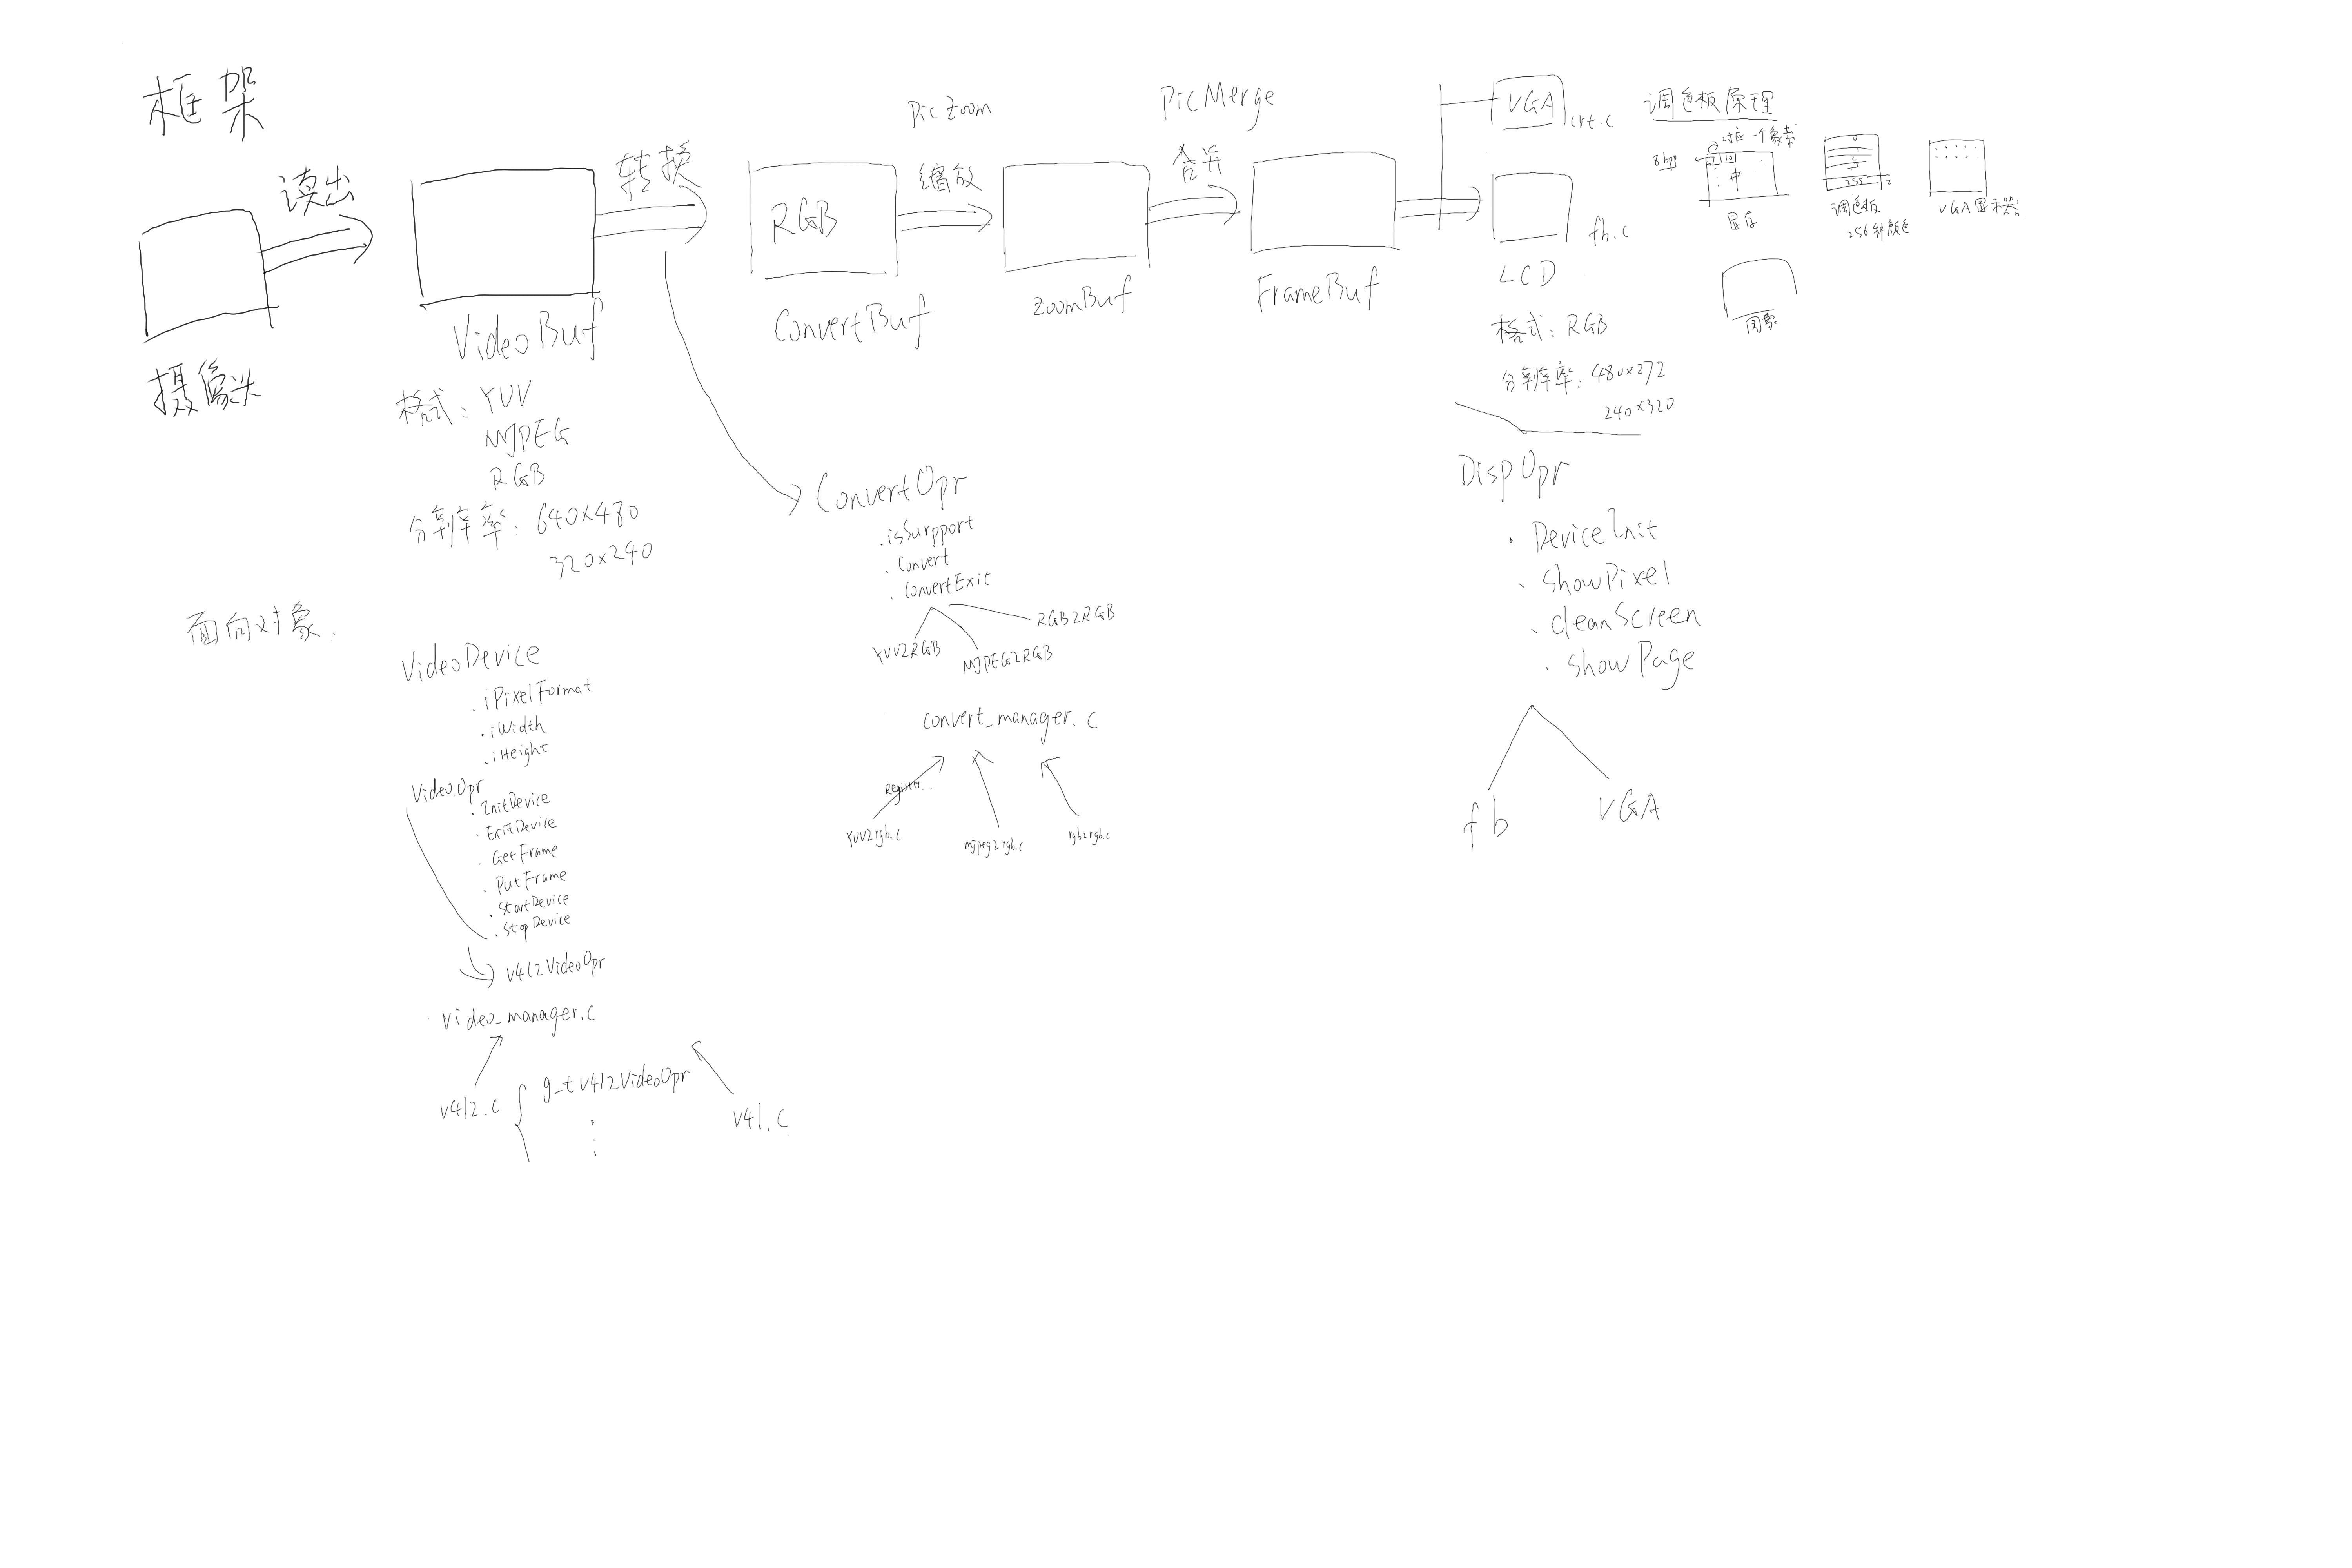 框架
读出
摄像头
VideoBuf
格式: YUV
MJPEG
RGB
分辨率: 640×480
320×240
转换
RGB
ConvertBuf
PicZoom
缩放
ZoomBuf
PicMerge
合并
FrameBuf
VGA
crt.c
fb.c
LCD
格式: RGB
分辨率: 480×272
240×320
调色板原理
对应一个象素
8bpp
中
显存
0
1
2
3
255
调色板
256种颜色
VGA显示器
图象
面向对象.
VideoDevice
.iPixelFormat
.iWidth
.iHeight
VideoOpr
.InitDevice
.ExitDevice
.GetFrame
.PutFrame
.StartDevice
.StopDevice
v4l2VideoOpr
video_manager.c
v4l2.c
g_tV4l2VideoOpr
v4l.c
ConvertOpr
.isSurpport
.Convert
.ConvertExit
YUV2RGB
MJPEG2RGB
RGB2RGB
convert_manager.c
Register..
yuv2rgb.c
mjpeg2rgb.c
rgb2rgb.c
DispOpr
.DeviceInit
.ShowPixel
.cleanScreen
.ShowPage
fb
VGA